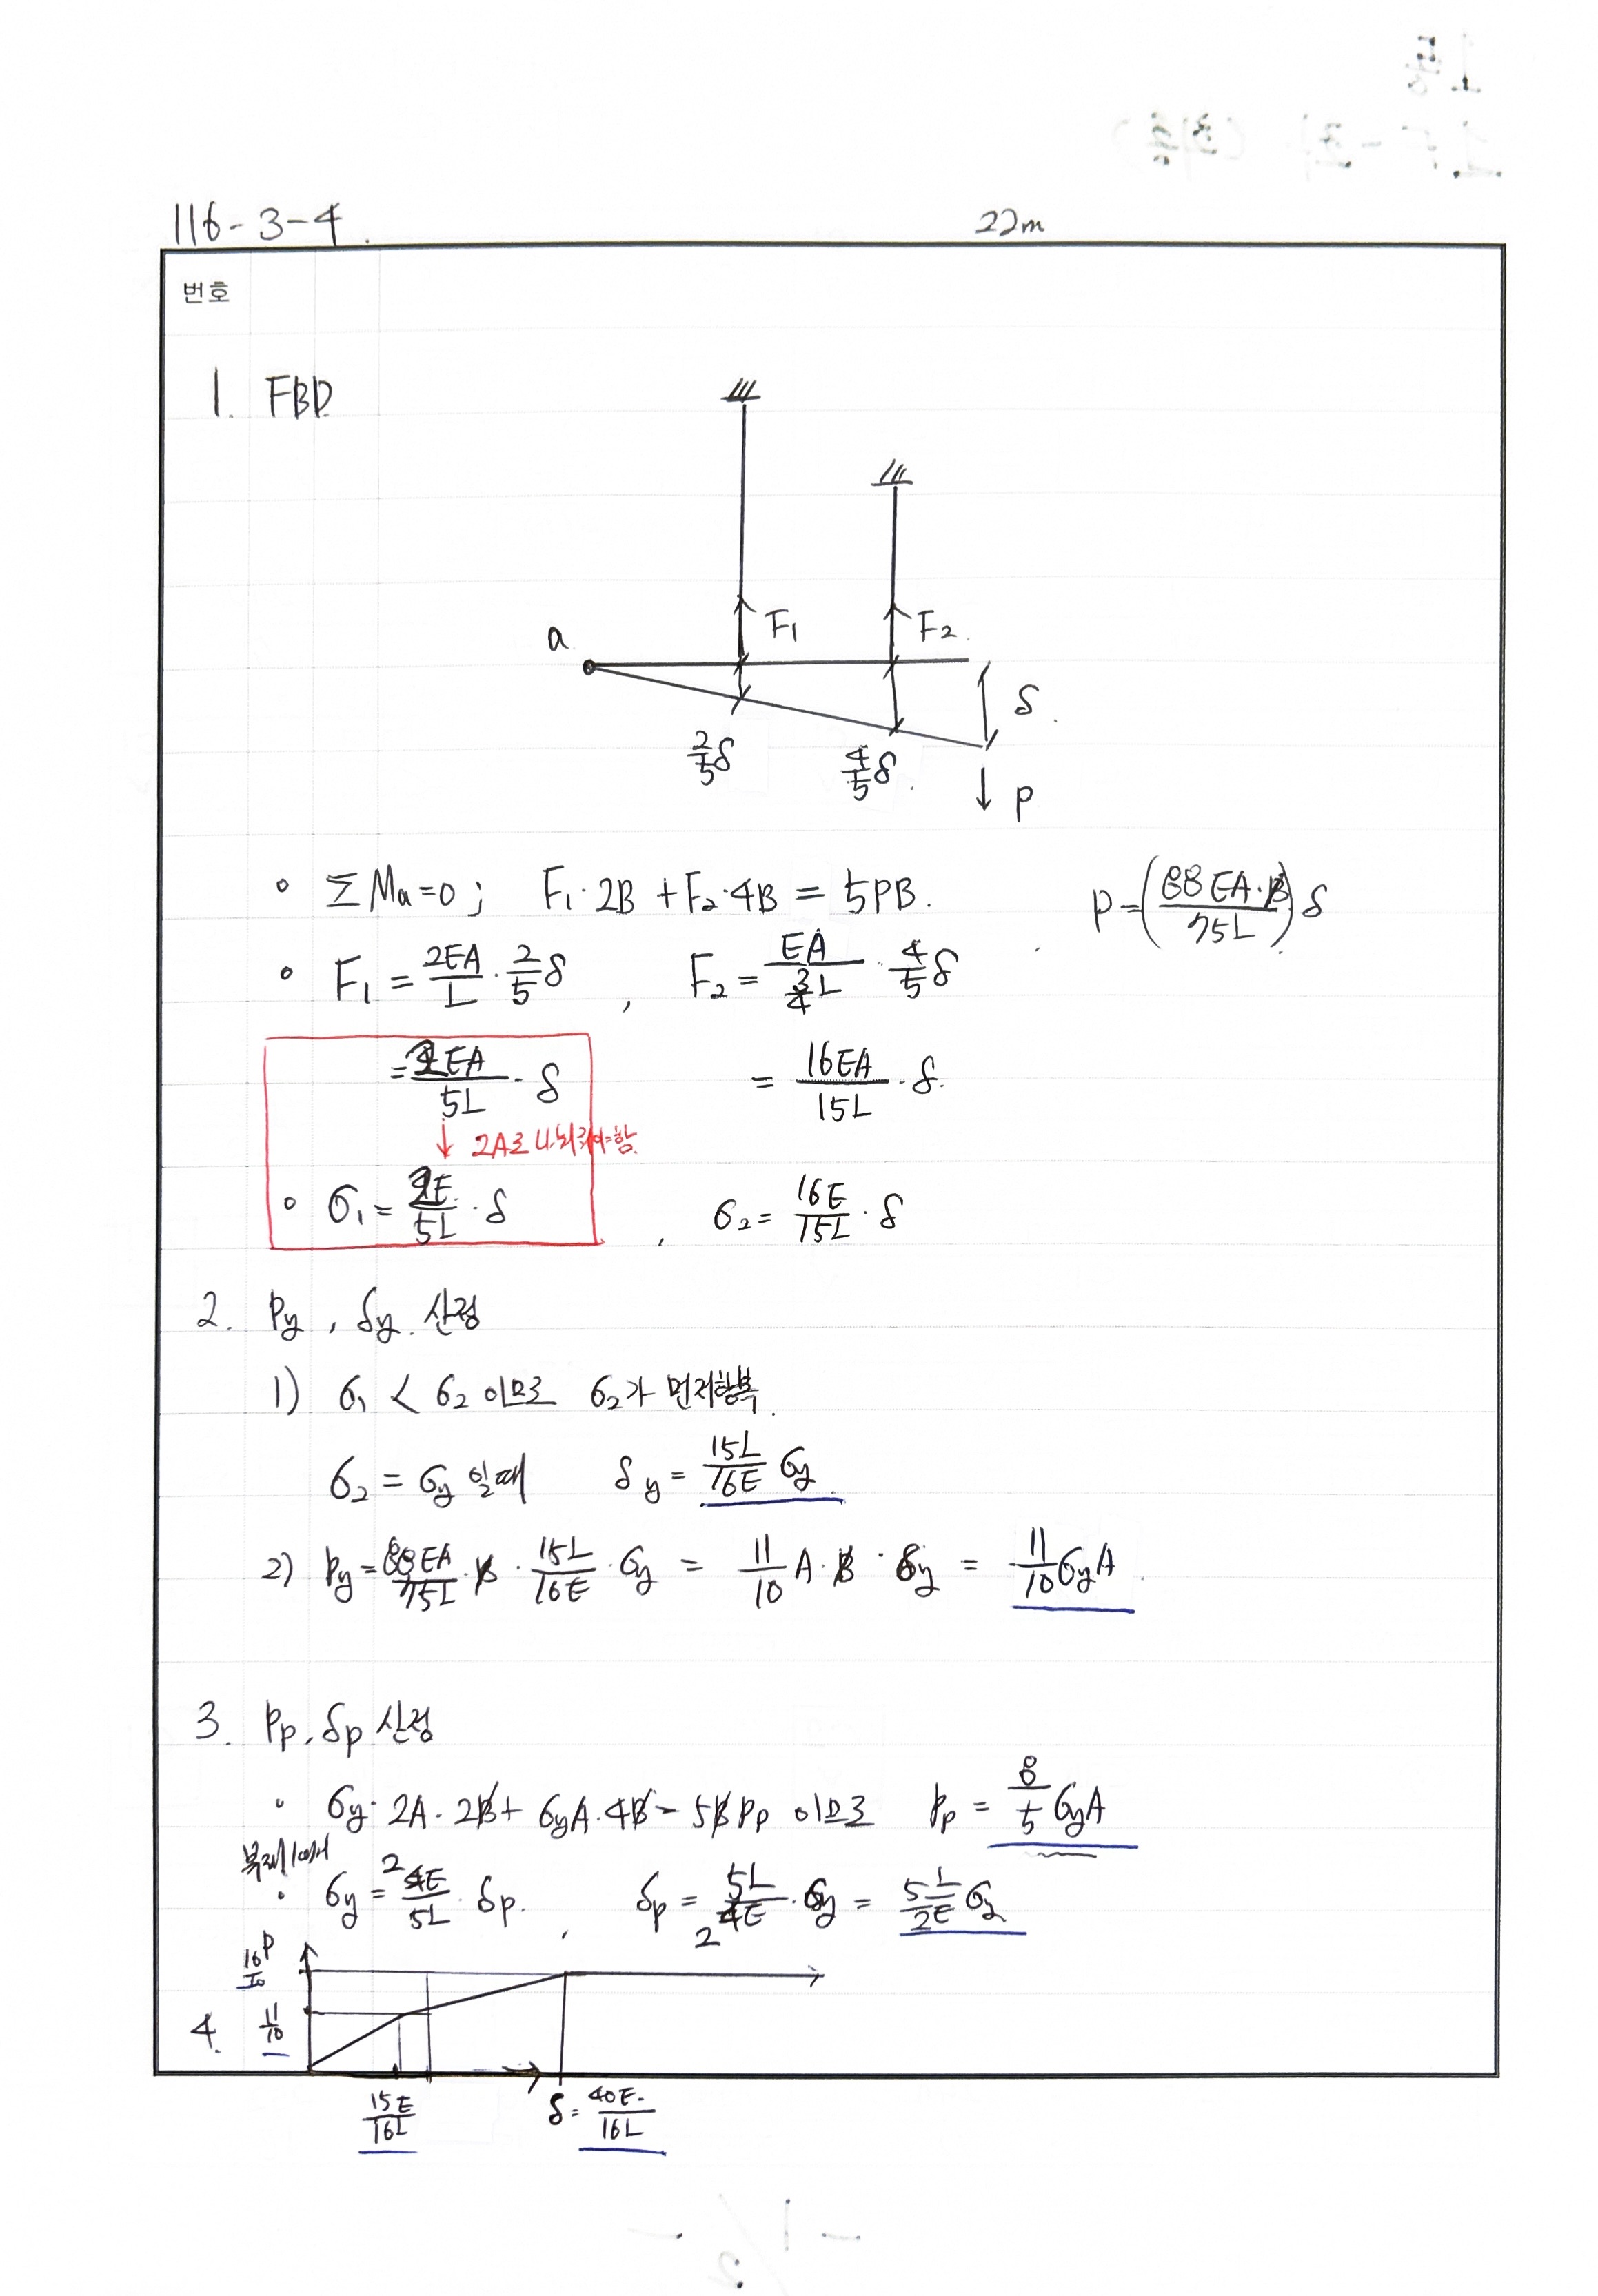 116-3-4.
22m
번호
1. FBD
a
F₁
F₂.
δ.
2/5 δ
4/5 δ.
P
∘ ΣMa=0 ; F₁·2B + F₂·4B = 5PB.
P=(88EA·B/75L)δ
∘ F₁ = 2EA/L · 2/5 δ , F₂ = EA/(3/4 L) · 4/5 δ
= 4EA/5L · δ = 16EA/15L · δ.
↓ 2A로 나눠줘야함.
∘ σ₁ = 2E/5L · δ , σ₂ = 16E/15L · δ
2. Py , δy. 산정
1) σ₁ < σ₂ 이므로 σ₂가 먼저항복.
σ₂ = σy 일때 δy = 15L/16E σy.
2) Py = 88EA/75L · B · 15L/16E · σy = 11/10 A·B · σy = 11/10 σyA.
3. Pp, δp 산정
∘ σy·2A·2B + σyA·4B = 5B Pp 이므로 Pp = 8/5 σyA
부재1에서
∘ σy = 2E/5L · δp. , δp = 5L/2E · σy = 5L/2E σy
16/10 P
4. 11/10
15E/16L δ = 40E/16L